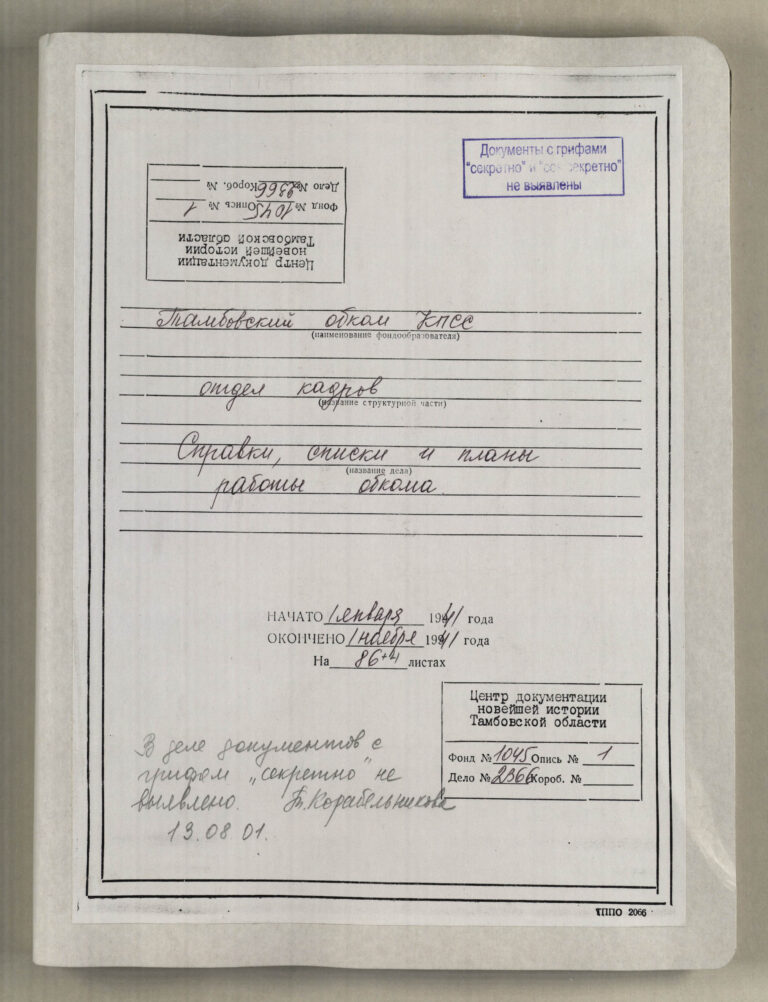 Документы с грифами
"секретно" и "сов.секретно"
не выявлены
Центр документации
новейшей истории
Тамбовской области
Фонд № 1045 Опись № 1
Дело № 2366 Короб. №
Тамбовский обком КПСС
(наименование фондообразователя)
отдел кадров
(название структурной части)
Справки, списки и планы
(название дела)
работы обкома
НАЧАТО 1 января 1941 года
ОКОНЧЕНО 1 ноября 1941 года
На 86+4 листах
Центр документации
новейшей истории
Тамбовской области
Фонд № 1045 Опись № 1
Дело № 2366 Короб. №
В деле документов с
грифом „секретно" не
выявлено. Корабельникова
13.08.01.
ТППО 2066